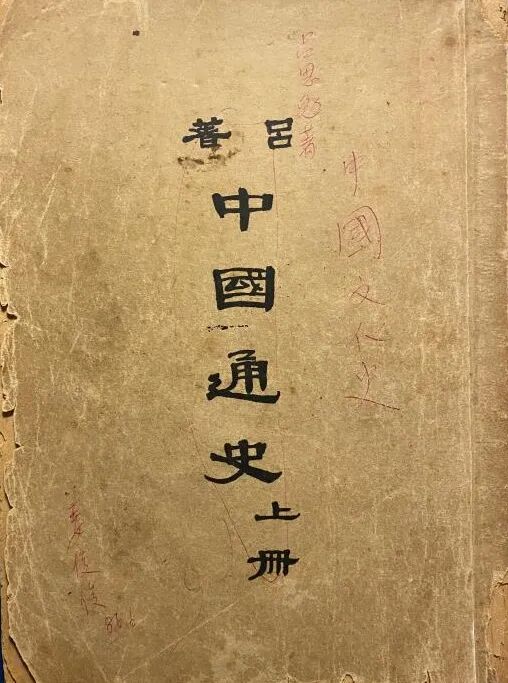 呂著
中國通史
上冊
吕思勉著
中國文化史